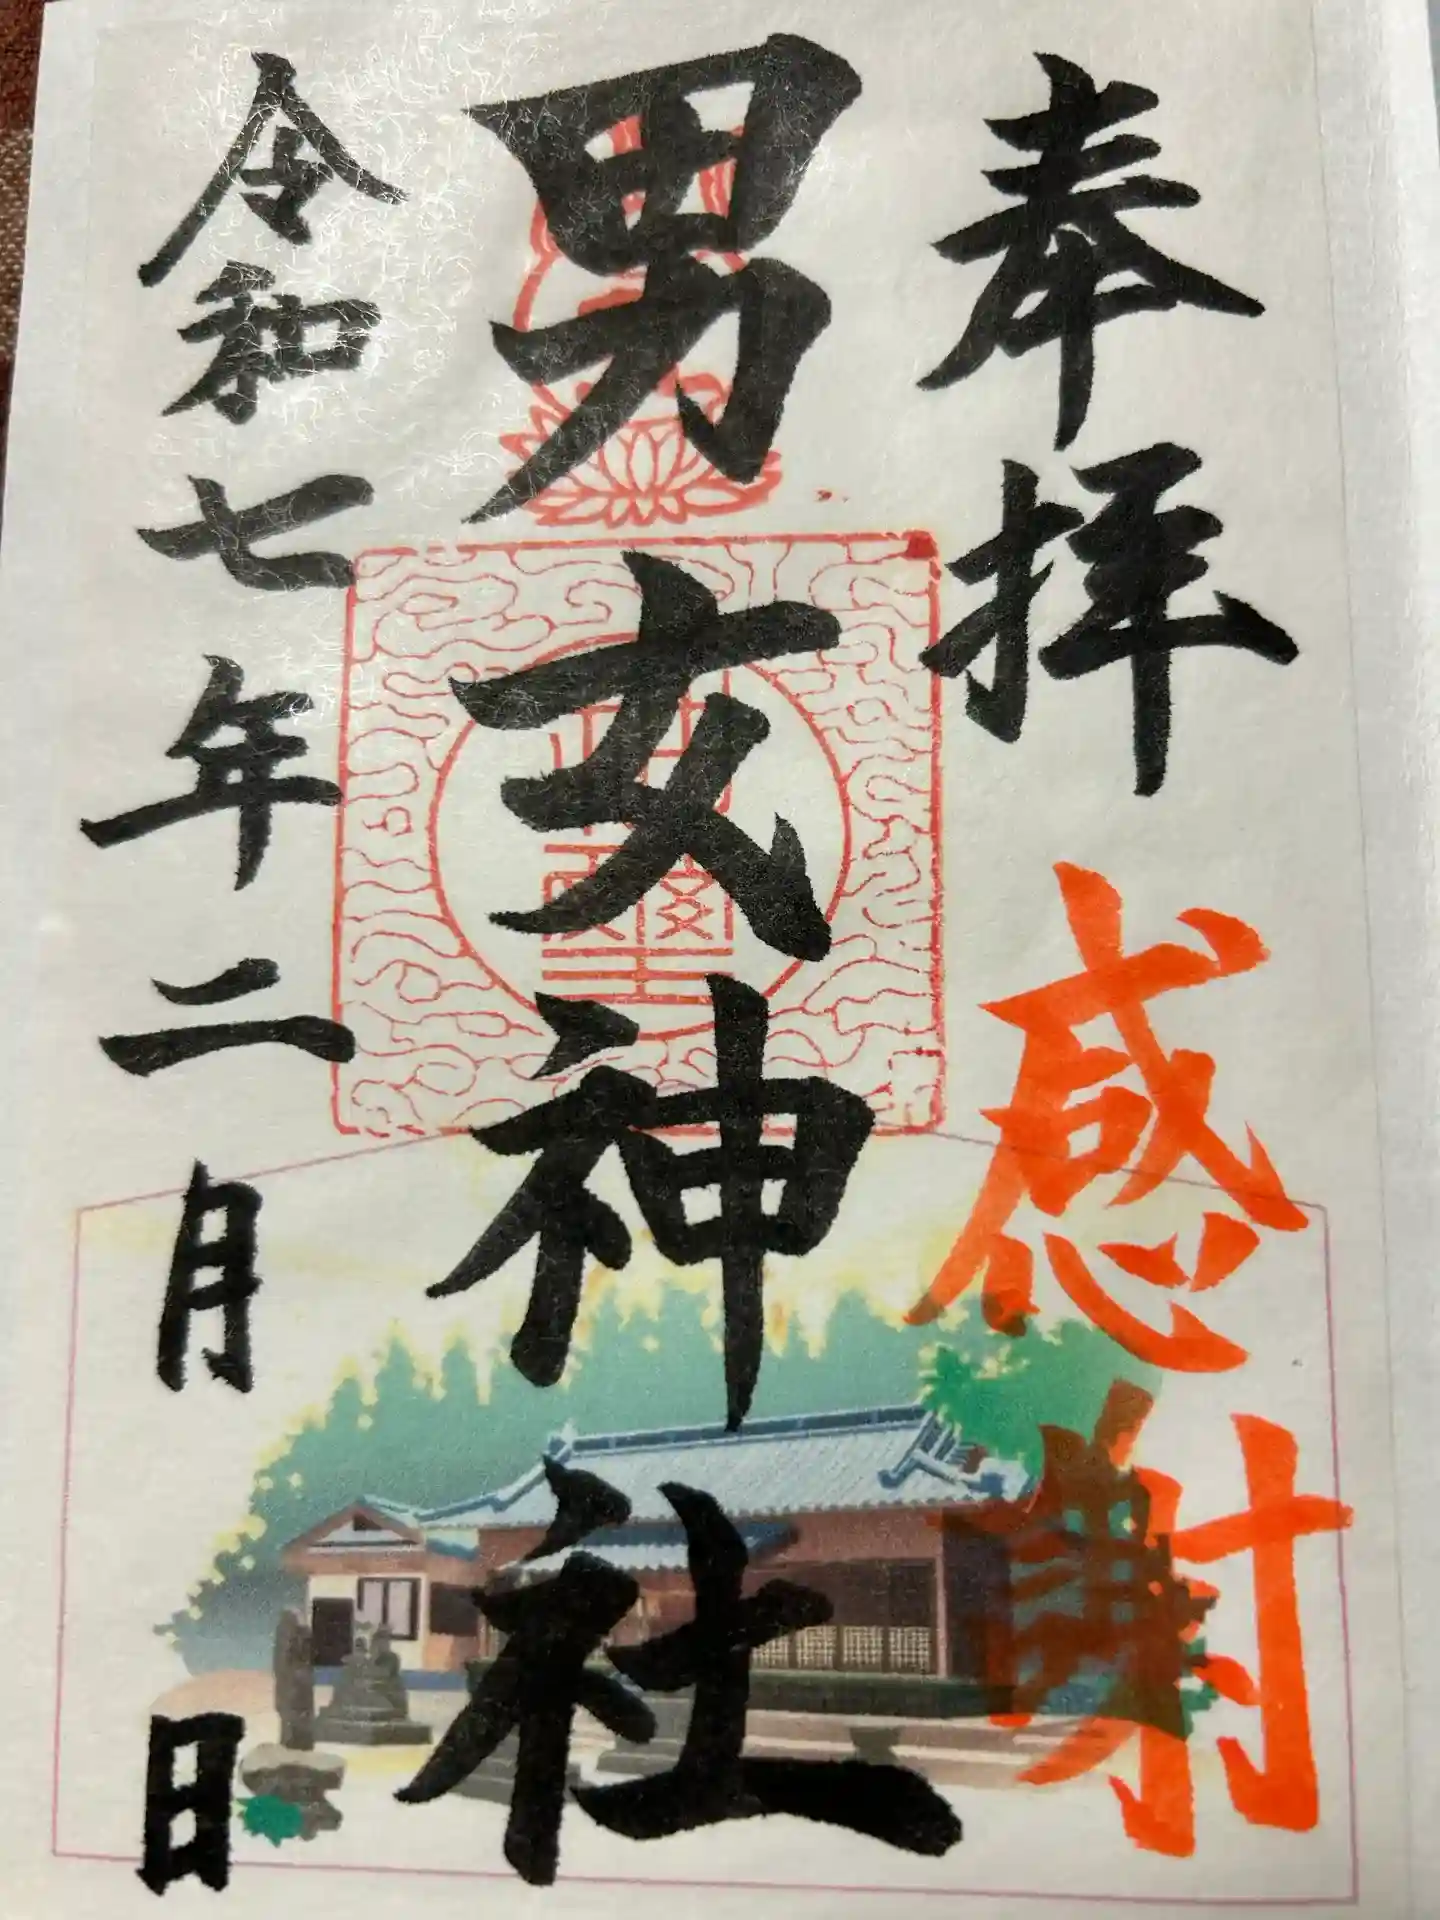 奉拝 感謝
男女神社
令和七年二月 日